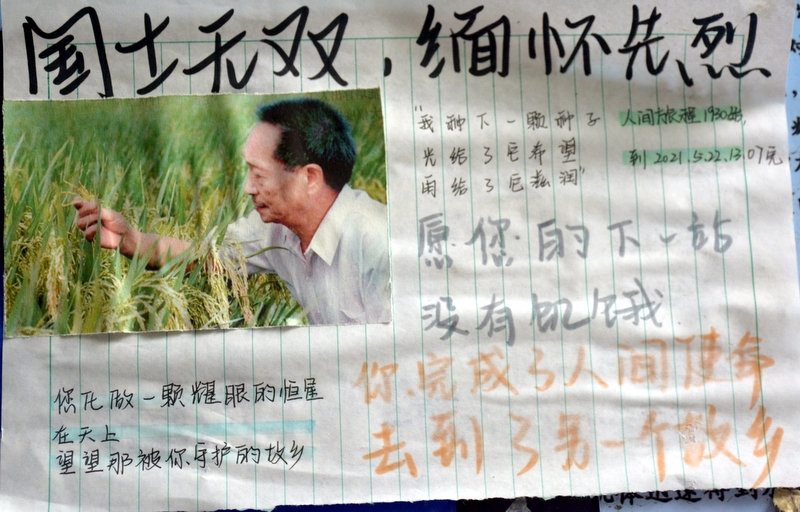 国士无双，缅怀先烈
"我种下一颗种子
光给了它希望
雨给了它滋润"
人间旅程1930始，
到2021.5.22.13.07完
愿您的下一站
没有饥饿
你完成了人间使命
去到了另一个故乡
您化做一颗耀眼的恒星
在天上
望望那被你守护的故乡